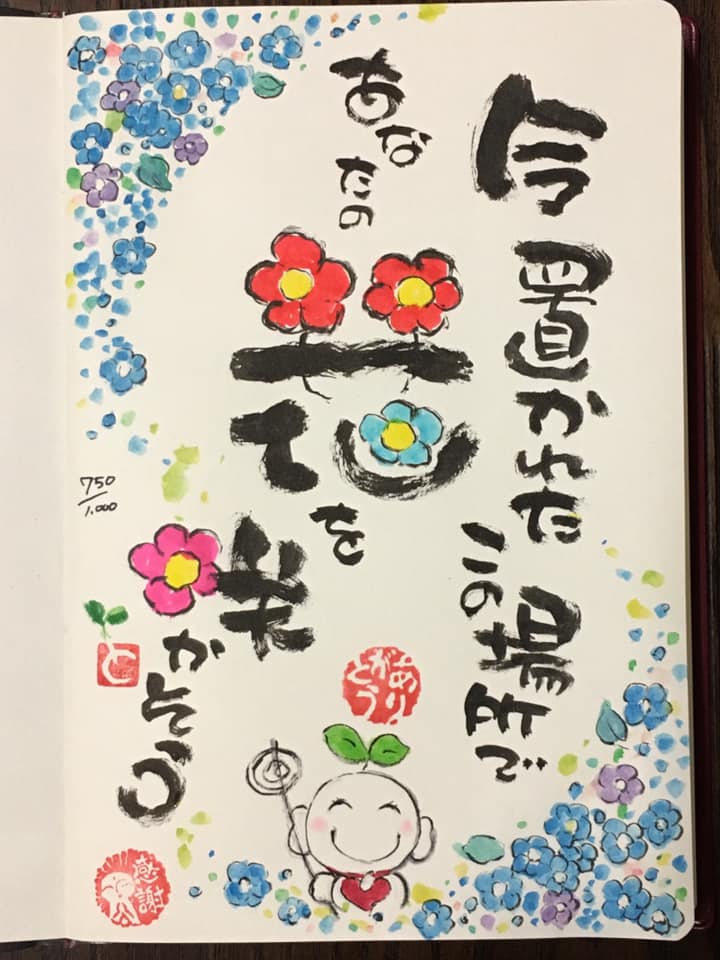 今置かれた
この場所で
あなたの
花を
咲かそう
ありがとう
750
1.000
と
感謝